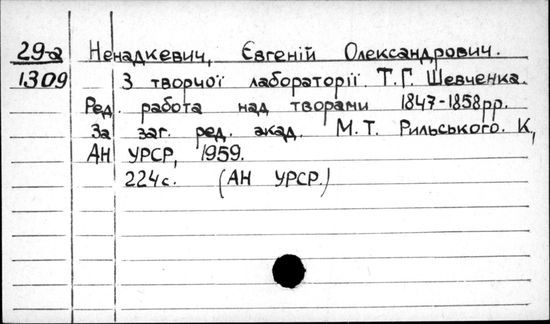 29-а Ненадкевич, Євгеній Олександрович.
1309 З творчої лабораторії Т.Г. Шевченка.
Ред. работа над творами 1847-1858рр.
За заг. ред. акад. М.Т. Рильського. К.,
АН УРСР, 1959.
224с. (АН УРСР.)